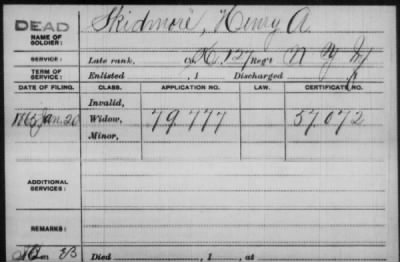 DEAD
NAME OF SOLDIER: Skidmore, Henry A.
SERVICE: Late rank, Co. K, 127 Reg't N Y
TERM OF SERVICE: Enlisted , 1 Discharged
DATE OF FILING. CLASS. APPLICATION NO. LAW. CERTIFICATE NO.
Invalid,
1865 Jan. 20 Widow, 79.777 57.072
Minor,
ADDITIONAL SERVICES:
REMARKS:
Died , 1 , at